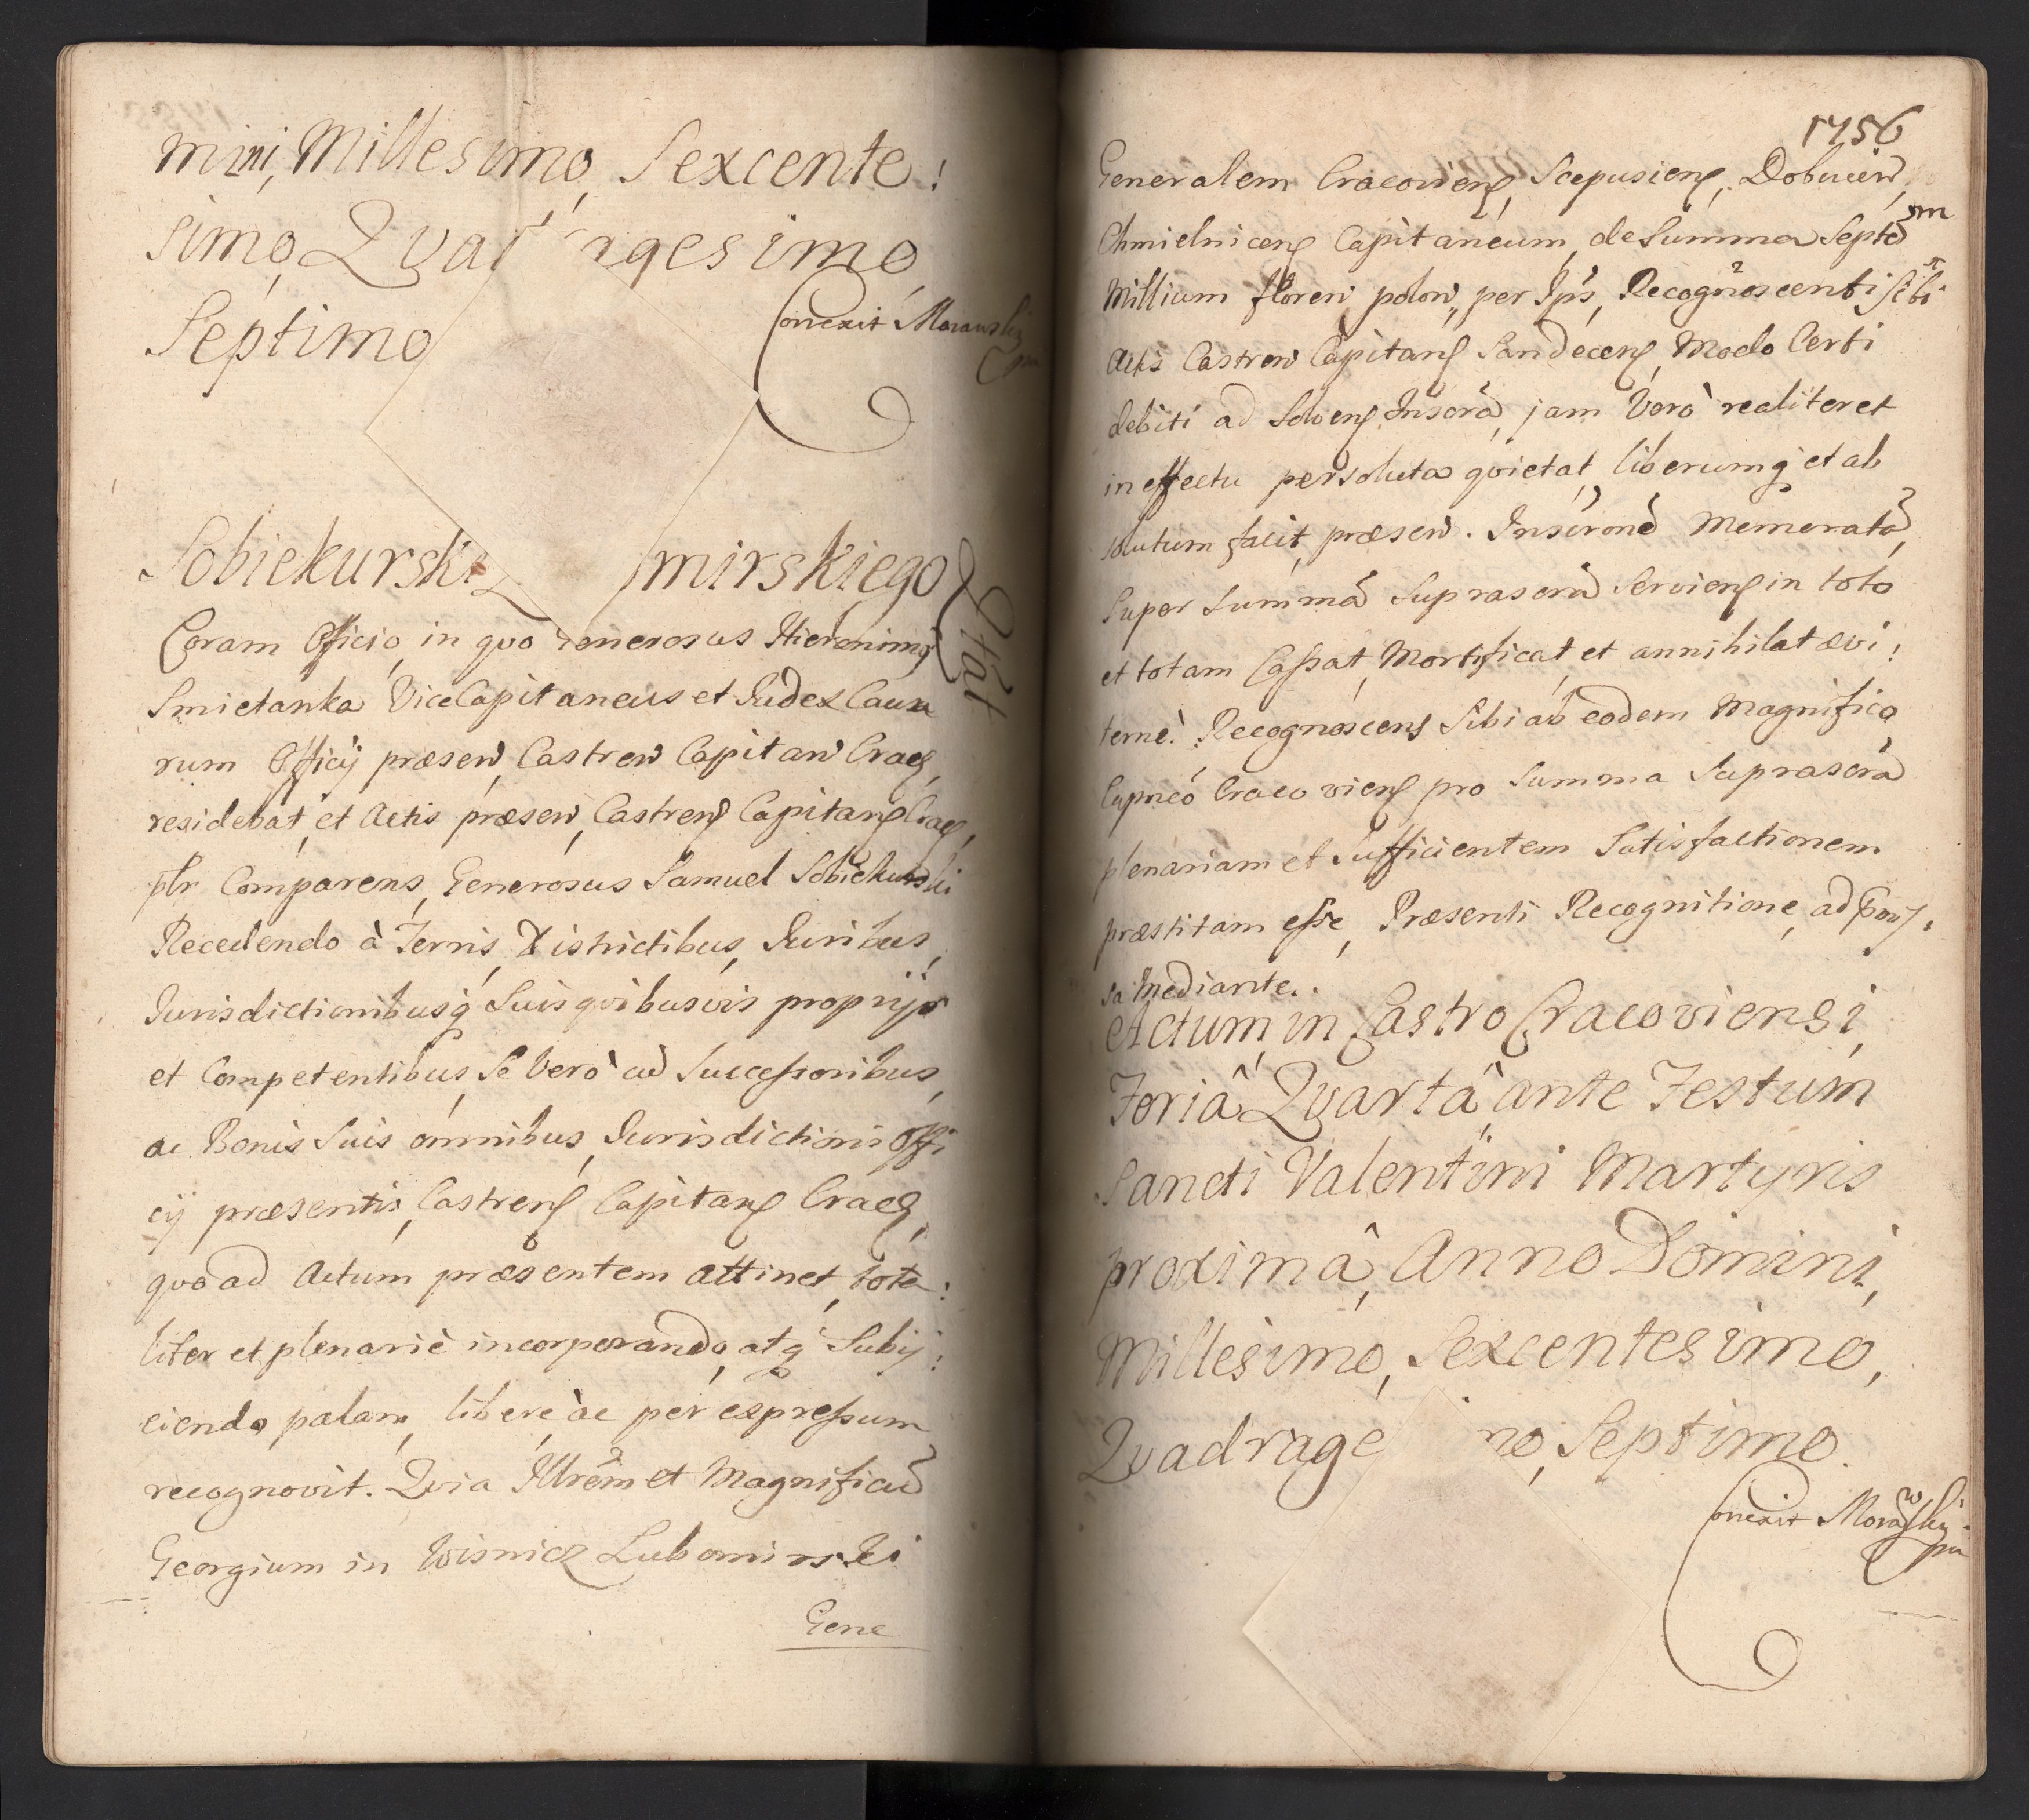 mini, Millesimo, Sexcente:
simo, Quar gesimo
Septimo
Conexit Morawski
Sobiekurski mirskiego
Qtāt
Coram Officio, in quo Generosus Hieronimq
Smietanka ViceCapitaneus et Judex Causa
rum Officij præsen, Castren Capitan Crac,
residebat, et Actis præsen, Castren Capitan Crac,
plr Comparens, Generosus Samuel Sobiekurski
Recedendo à Terris, Districtibus, Juribus,
Jurisdictionibusq Suis quibusvis proprijs
et Competentibus, Se verò cũ Successoribus,
ac Bonis Suis omnibus, Jurisdictioni Offi
cij præsentis, Castren Capitan Crac,
quo ad Actum præsentem attinet, tota:
liter et plenariè incorporando, atq Subij:
ciendo, palam, liberè àc per expressum
recognovit. Quia Jllrem et Magnificũ
Georgium in Wisnicz Lubomirski
Gene
1756
Generalem Cracovien, Scepusien, Dobricen,
Chmielnicen Capitaneum, de Summa Septẽm
Millium floren polon, per Jps, Recognoscenti Sibi
Actis Castren Capitan Sandecen, Modo Certi
debiti ad Solven Inscrã, jam Verò realiter et
in effectu persoluta quietat, liberumq et ab
solutum facit, præsen. Inscronẽ Memoratã,
Super Summã Suprascrã Servien in toto
et totam Cassat, Mortificat, et annihilat ævi:
ternè. Recognoscens Sibi ab eodem Magnifico,
Capneó Cracovien pro Summa Suprascrã
plenariam et Sufficientem Satisfactionem
præstitam esse, Præsenti Recognitione, ad
sa Mediante.
Actum in Castro Cracoviensi,
Feriâ Quartâ ante Festum
Sancti Valentini Martyris
proximâ, Anno Domini,
Millesimo, Sexcentesimo,
Quadrage mo, Septimo.
Conexit Morawski